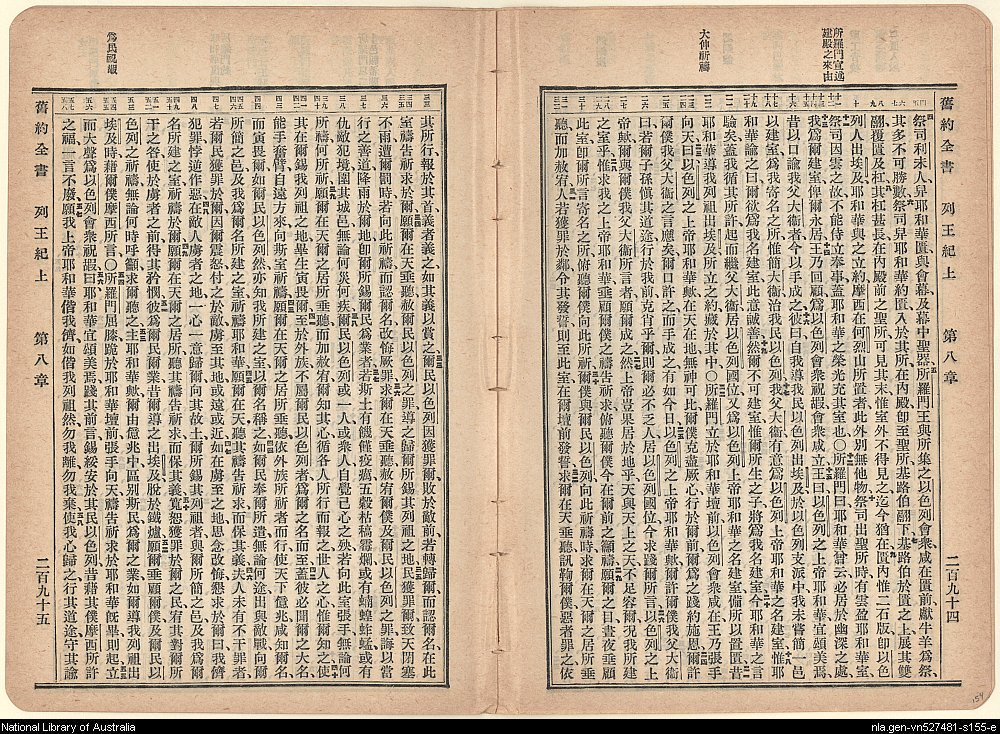 所羅門宣述
建殿之來由
大伸祈禱
舊約全書 列王紀上 第八章 二百九十四
祭司利未人舁耶和華匱與會幕及幕中聖器所羅門王與所集之以色列會衆咸在匱前獻牛羊爲祭、
其多不可勝數祭司舁耶和華約匱入於其所在內殿卽至聖所基路伯翮下基路伯於匱之上展其雙
翮覆匱及杠其杠甚長在內殿前之聖所可見其末惟室外不得見之迄今猶在匱內惟二石版卽以色
列人出埃及耶和華與之立約摩西在何烈山所置者此外別無他物祭司出聖所時有雲盈耶和華室
祭司因雲之故不能侍立奉事蓋耶和華之榮光充其室也〇所羅門曰耶和華曾云必居於幽深之處
我爲爾建室俾爾永居王乃回顧爲以色列會衆祝嘏會衆咸立王曰以色列之上帝耶和華宜頌美焉
昔以口諭我父大衛者今以手成之彼曰自我導我民以色列出埃及於以色列支派中我未嘗簡一邑
以建室爲我寄名之所惟簡大衛治我民以色列我父大衛有意爲以色列上帝耶和華之名建室耶和
華諭之曰爾欲爲我名建室此意誠善然爾不可建室惟爾所生之子將爲我名建室今耶和華之言
驗矣蓋我循其所許起而繼父大衛居以色列國位又爲以色列上帝耶和華之名建室備所以置匱昔
耶和華導我列祖出埃及所立之約藏於其中〇所羅門立於耶和華壇前以色列會衆咸在王乃張手
向天曰以色列之上帝耶和華歟在天在地無神可比爾僕克盡厥心行於爾前爾爲之踐約施恩爾許
爾僕我父大衛之言應矣爾口許之而手成之有如今日以色列之上帝耶和華歟昔爾許爾僕我父大衛
曰若爾子孫愼其道途行於我前克肖乎爾則爾必不乏人居以色列國位今求踐爾所言以色列之上
帝歟爾與爾僕我父大衛所言者願爾成之然上帝豈果居於地乎天與天上之天不足容爾況我所建
之室乎惟求我之上帝耶和華垂顧爾僕之禱告祈求俯聽爾僕今在爾前之籲禱願爾之目晝夜垂顧
此室卽爾所言寄名之所俯聽爾僕向此所祈禱爾僕與爾民以色列向此所祈禱時求爾在所居之天垂
聽而加赦宥人若獲罪於鄰令其發誓則至此室在爾壇前發誓求爾在天垂聽訊鞫爾僕惡者罪之依
爲民祝嘏
舊約全書 列王紀上 第八章 二百九十五
其所行報於其首義者義之如其義以賞之爾民以色列因獲罪爾敗於敵前若轉歸爾而認爾名在此
室禱告祈求於爾願爾在天垂聽赦爾民以色列之罪導之歸爾所錫其列祖之地民獲罪爾致天閉塞
不雨遭爾罰時若向此所祈禱而認爾名改悔厥罪求爾在天垂聽赦宥爾僕及爾民以色列之罪誨以當
行之善道降雨於爾地卽爾所錫爾民爲業者若斯土有饑饉疫癘五穀枯槁霉爛或有蝻蝗蚱蜢或有
仇敵犯境圍其城邑無論何災何疾爾民以色列或一人或衆人自覺己心之殃若向此室張手無論何
所禱何所祈願爾在天爾之居所垂聽而加赦宥爾知其心循各人所行而報之世人之心惟爾知之使
其在爾錫我列祖之地畢生寅畏爾至於外族不屬爾民以色列者爲爾之名而至蓋彼必聞爾之大名
能手奮臂自遠方來向斯室祈禱願爾在天爾之居所垂聽依外族所祈者而行使天下億兆咸知爾名
而寅畏爾如爾民以色列然亦知我所建之室以爾名稱之如爾民奉爾所遣無論何途出與敵戰向爾
所簡之邑及我爲爾名所建之室祈禱耶和華願爾在天聽其禱告祈求而保其義夫人未有不干罪者
若爾民獲罪於爾因爾震怒付之於敵虜至其地或遠或近如在虜至之地思念改悔懇求於爾曰我儕
犯罪悖逆作惡在敵人虜者之地一心一意歸爾向其故土爾所錫其列祖者與爾所簡之邑及我爲爾
名所建之室祈禱於爾願爾在天爾之居所聽其禱告祈求而保其義寬恕獲罪於爾之民有其對爾所
干之咎使於虜者之前得其矜憫彼爲爾民爾業昔爾導之出埃及脫於鐵爐願爾垂顧爾僕及爾民以
色列之祈禱無論何時呼籲求爾聽之主耶和華歟爾由億兆中區別斯民爲爾之業如爾導我列祖出
埃及時藉爾僕摩西所言〇所羅門屈膝跪於耶和華壇前張手向天禱告祈求於耶和華旣畢則起立
而大聲爲以色列會衆祝嘏曰耶和華宜頌美焉踐其前言錫綏安於其民以色列昔藉其僕摩西所許
之福一言不廢願我上帝耶和華偕我儕如偕我列祖然勿我離勿我棄使我心歸之行其道途守其諭
National Library of Australia
nla.gen-vn527481-s155-e